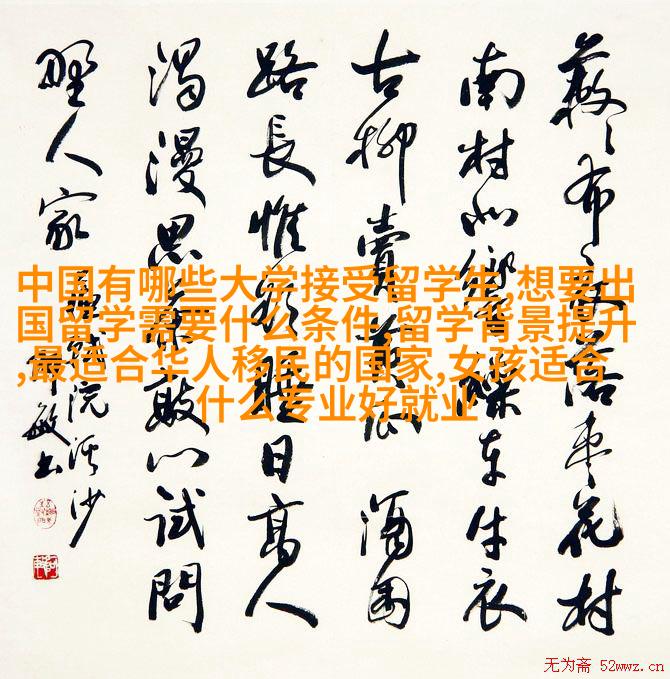 蔌々衣巾落枣花村
南村北響繰车牛衣
古柳賣黄瓜 酒困
路長惟欲睡日高人
渴漫思茶敲门试問
野人家
浣溪沙
敏书
中国有哪些大学接受留学生,想要出
国留学需要什么条件,留学背景提升
,最适合华人移民的国家,女孩适合
什么专业好就业
无为斋 52wwz.cn